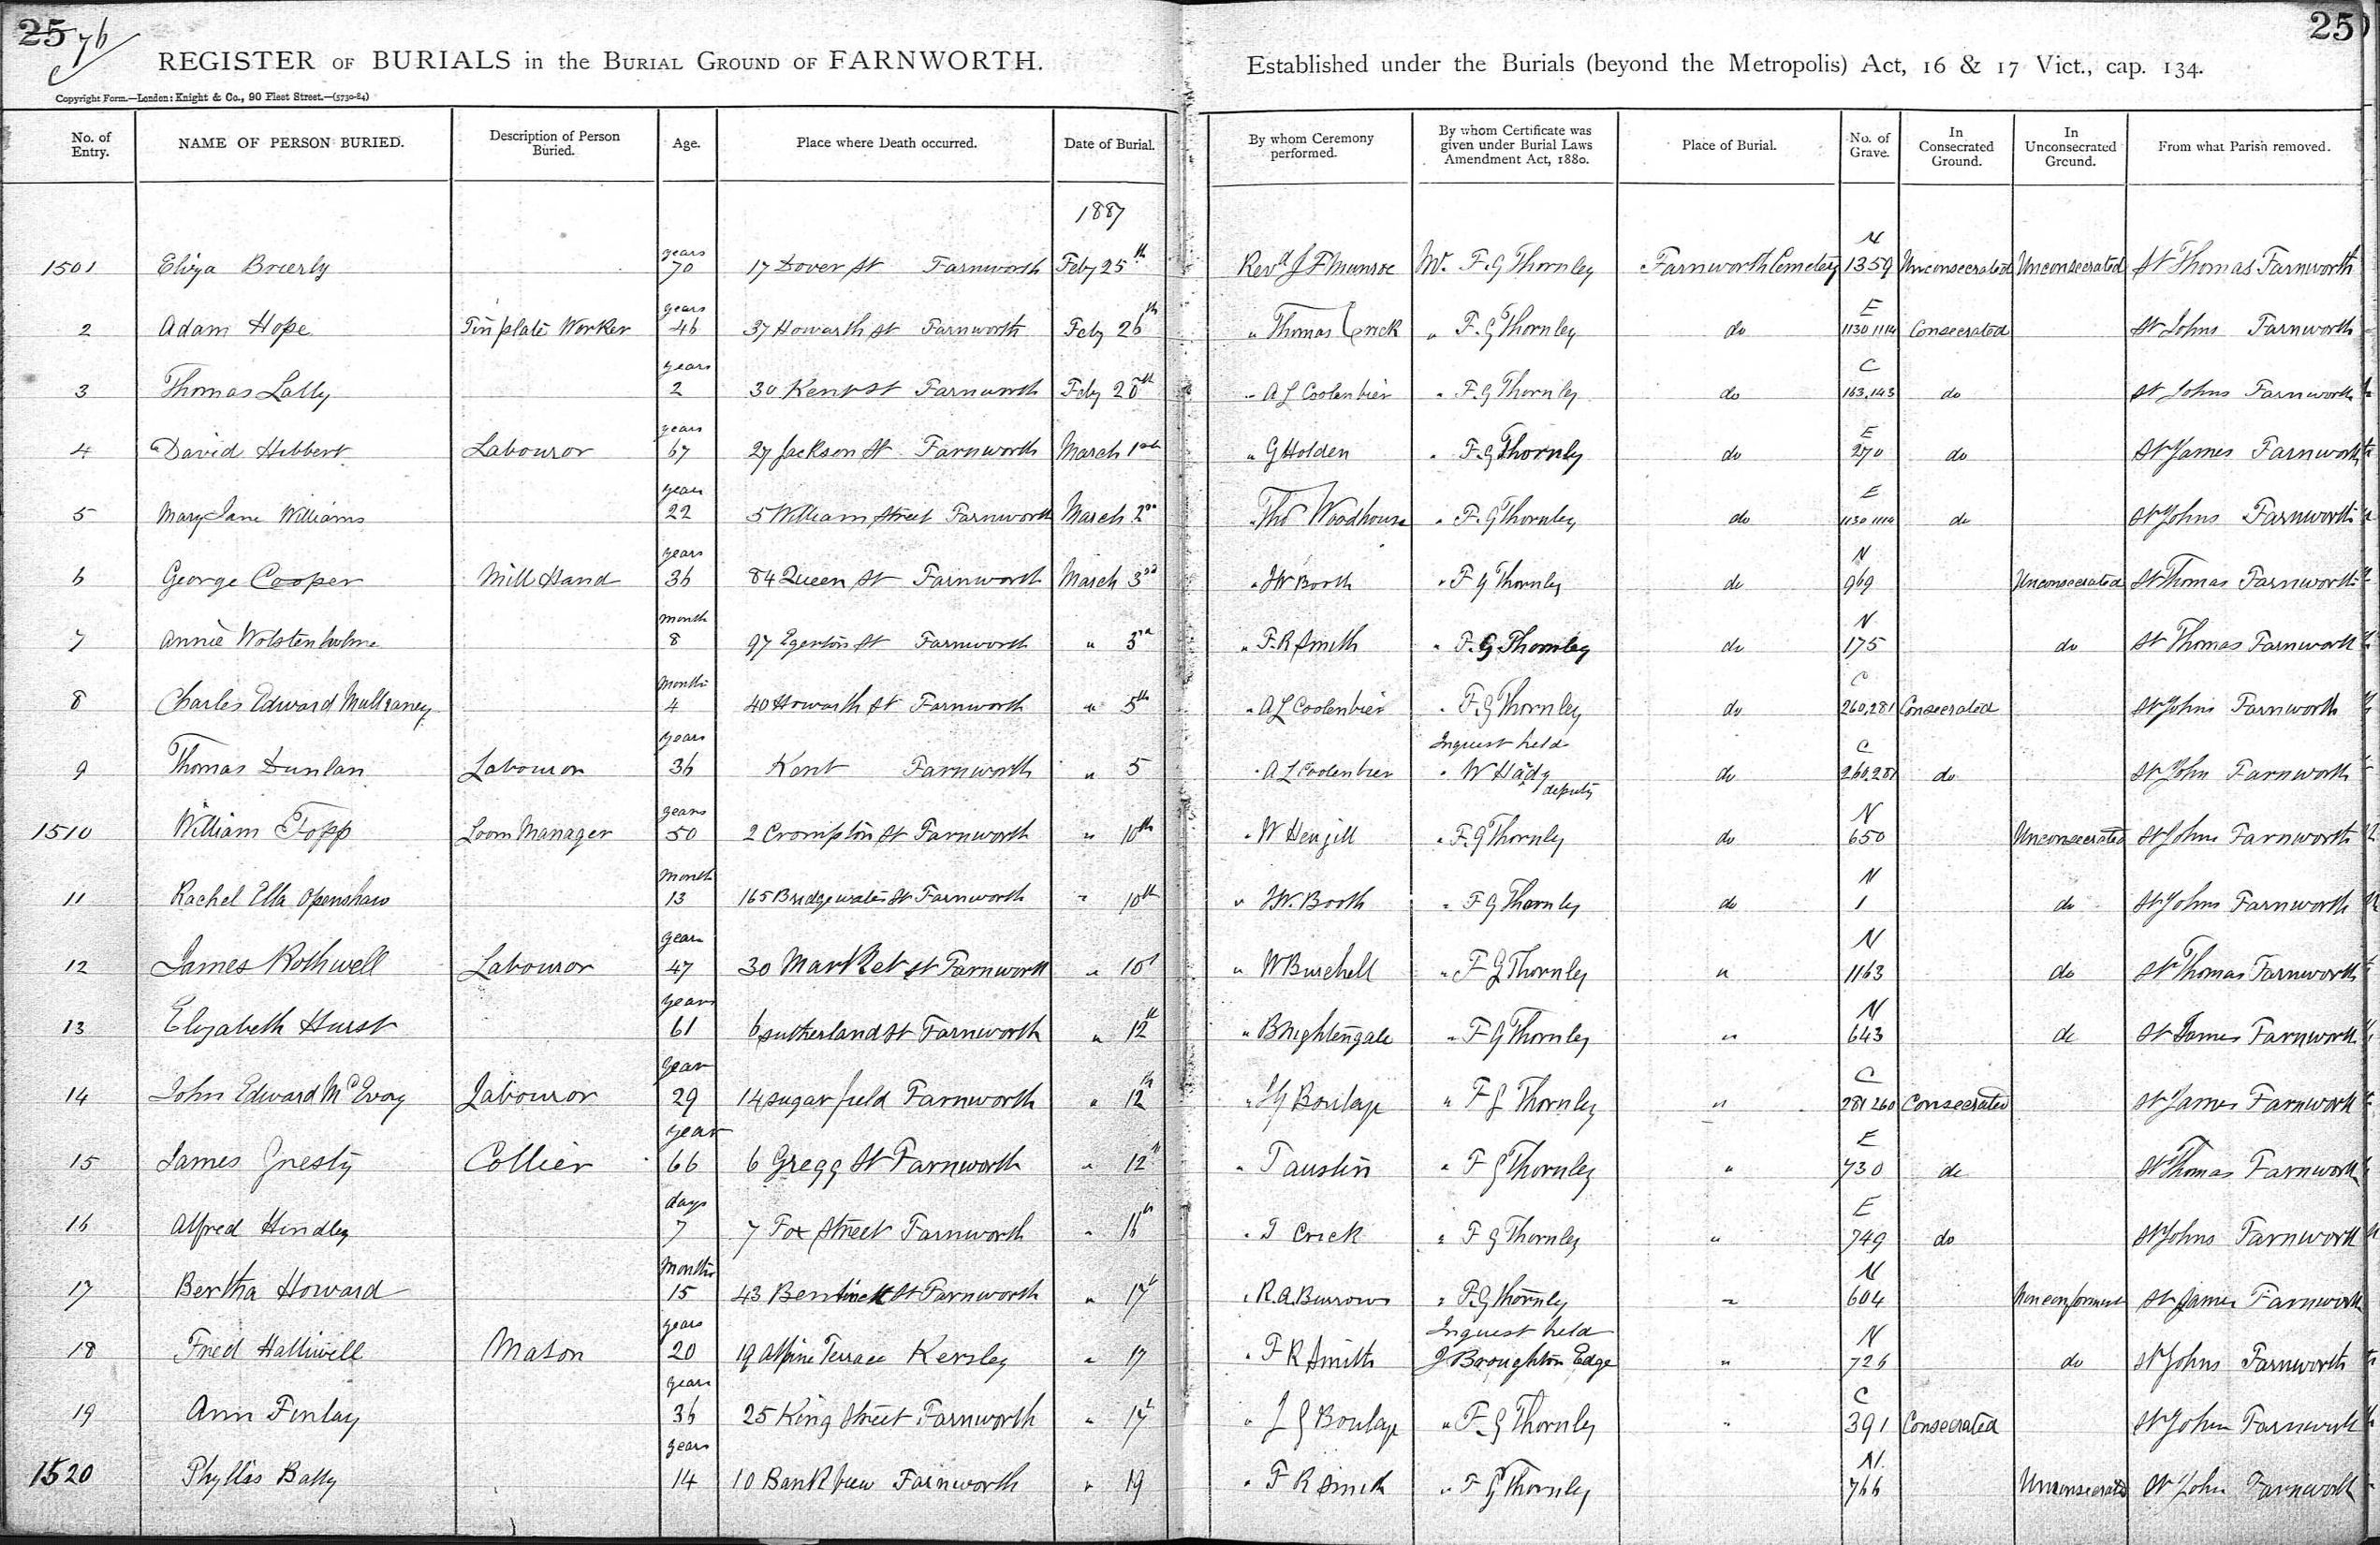 25 76
25
REGISTER OF BURIALS in the BURIAL GROUND OF FARNWORTH. Established under the Burials (beyond the Metropolis) Act, 16 & 17 Vict., cap. 134.
Copyright Form.—London: Knight & Co., 90 Fleet Street.—(5730-84)
No. of Entry. NAME OF PERSON BURIED. Description of Person Buried. Age. Place where Death occurred. Date of Burial. By whom Ceremony performed. By whom Certificate was given under Burial Laws Amendment Act, 1880. Place of Burial. No. of Grave. In Consecrated Ground. In Unconsecrated Ground. From what Parish removed.
1887
1501 Eliza Brierly years 70 17 Dover St Farnworth Feby 25th Revd J F Munroe Mr. F. G Thornley Farnworth Cemetery N 1359 Unconsecrated Unconsecrated St Thomas Farnworth
2 Adam Hope Tin plate Worker years 46 37 Howarth St Farnworth Feby 26th " Thomas Crick " F. G Thornley do E 1130 1114 Consecrated St Johns Farnworth
3 Thomas Lally years 2 30 Kent St Farnworth Feby 28th " A L Coolenbier " F. G Thornley do C 163,143 do St Johns Farnworth
4 David Hibbert Labouror years 67 27 Jackson St Farnworth March 1st " G Holden " F. G Thornley do E 270 do St James Farnworth
5 Mary Jane Williams years 22 5 William Street Farnworth March 2nd " Thos Woodhouse " F. G Thornley do E 1130 1114 do St Johns Farnworth
6 George Cooper Mill Hand years 36 84 Queen St Farnworth March 3rd " J W Booth " F G Thornley do N 969 Unconsecrated St Thomas Farnworth
7 Annie Wolstenholme month 8 97 Egerton St Farnworth " 3rd " F. R Smith " F. G Thornley do N 175 do St Thomas Farnworth
8 Charles Edward Mullraney months 4 40 Howarth St Farnworth " 5th " A L Coolenbier " F. G Thornley do C 260,281 Consecrated St Johns Farnworth
9 Thomas Dunlan Labouror years 36 Kent Farnworth " 5 " A L Coolenbier Inquest held " W deputy do C 260,281 do St John Farnworth
1510 William Topp Loom Manager years 50 2 Crompton St Farnworth " 10th " W Hengill " F. G Thornley do N 650 Unconsecrated St Johns Farnworth
11 Rachel Ella Openshaw month 13 165 Bridgewater St Farnworth " 10th " J W. Booth " F G Thornley do N 1 do St Johns Farnworth
12 James Rothwell Labouror years 47 30 Market St Farnworth " 10th " W Burchell " F G Thornley " N 1163 do St Thomas Farnworth
13 Elizabeth Hurst years 61 6 Sutherland St Farnworth " 12th " B Nightengale " F G Thornley " N 643 do St James Farnworth
14 John Edward McEvoy Labouror year 29 14 Sugar field Farnworth " 12th " J G Boulage " F G Thornley " C 281 260 Consecrated St James Farnworth
15 James Gresty Collier year 66 6 Gregg St Farnworth " 12th " T Austin " F G Thornley " E 730 do St Thomas Farnworth
16 Alfred Hindley days 7 7 Fox Street Farnworth " 16th " T Crick " F G Thornley " E 749 do St Johns Farnworth
17 Bertha Howard months 15 43 Bentinck St Farnworth " 17th " R. A. Burrows " F. G Thornley " N 604 Nonconformist St James Farnworth
18 Fred Halliwell Mason years 20 19 Alpine Terrace Kersley " 17 " F R Smith Inquest held J Broughton Edge " N 726 do St Johns Farnworth
19 Ann Finlay years 36 25 King Street Farnworth " 17th " J G Boulage " F. G Thornley " C 391 Consecrated St John Farnworth
1520 Phyllis Bally years 14 10 Bank view Farnworth " 19 " F R Smith " F G Thornley N. 766 Unconsecrated St John Farnworth